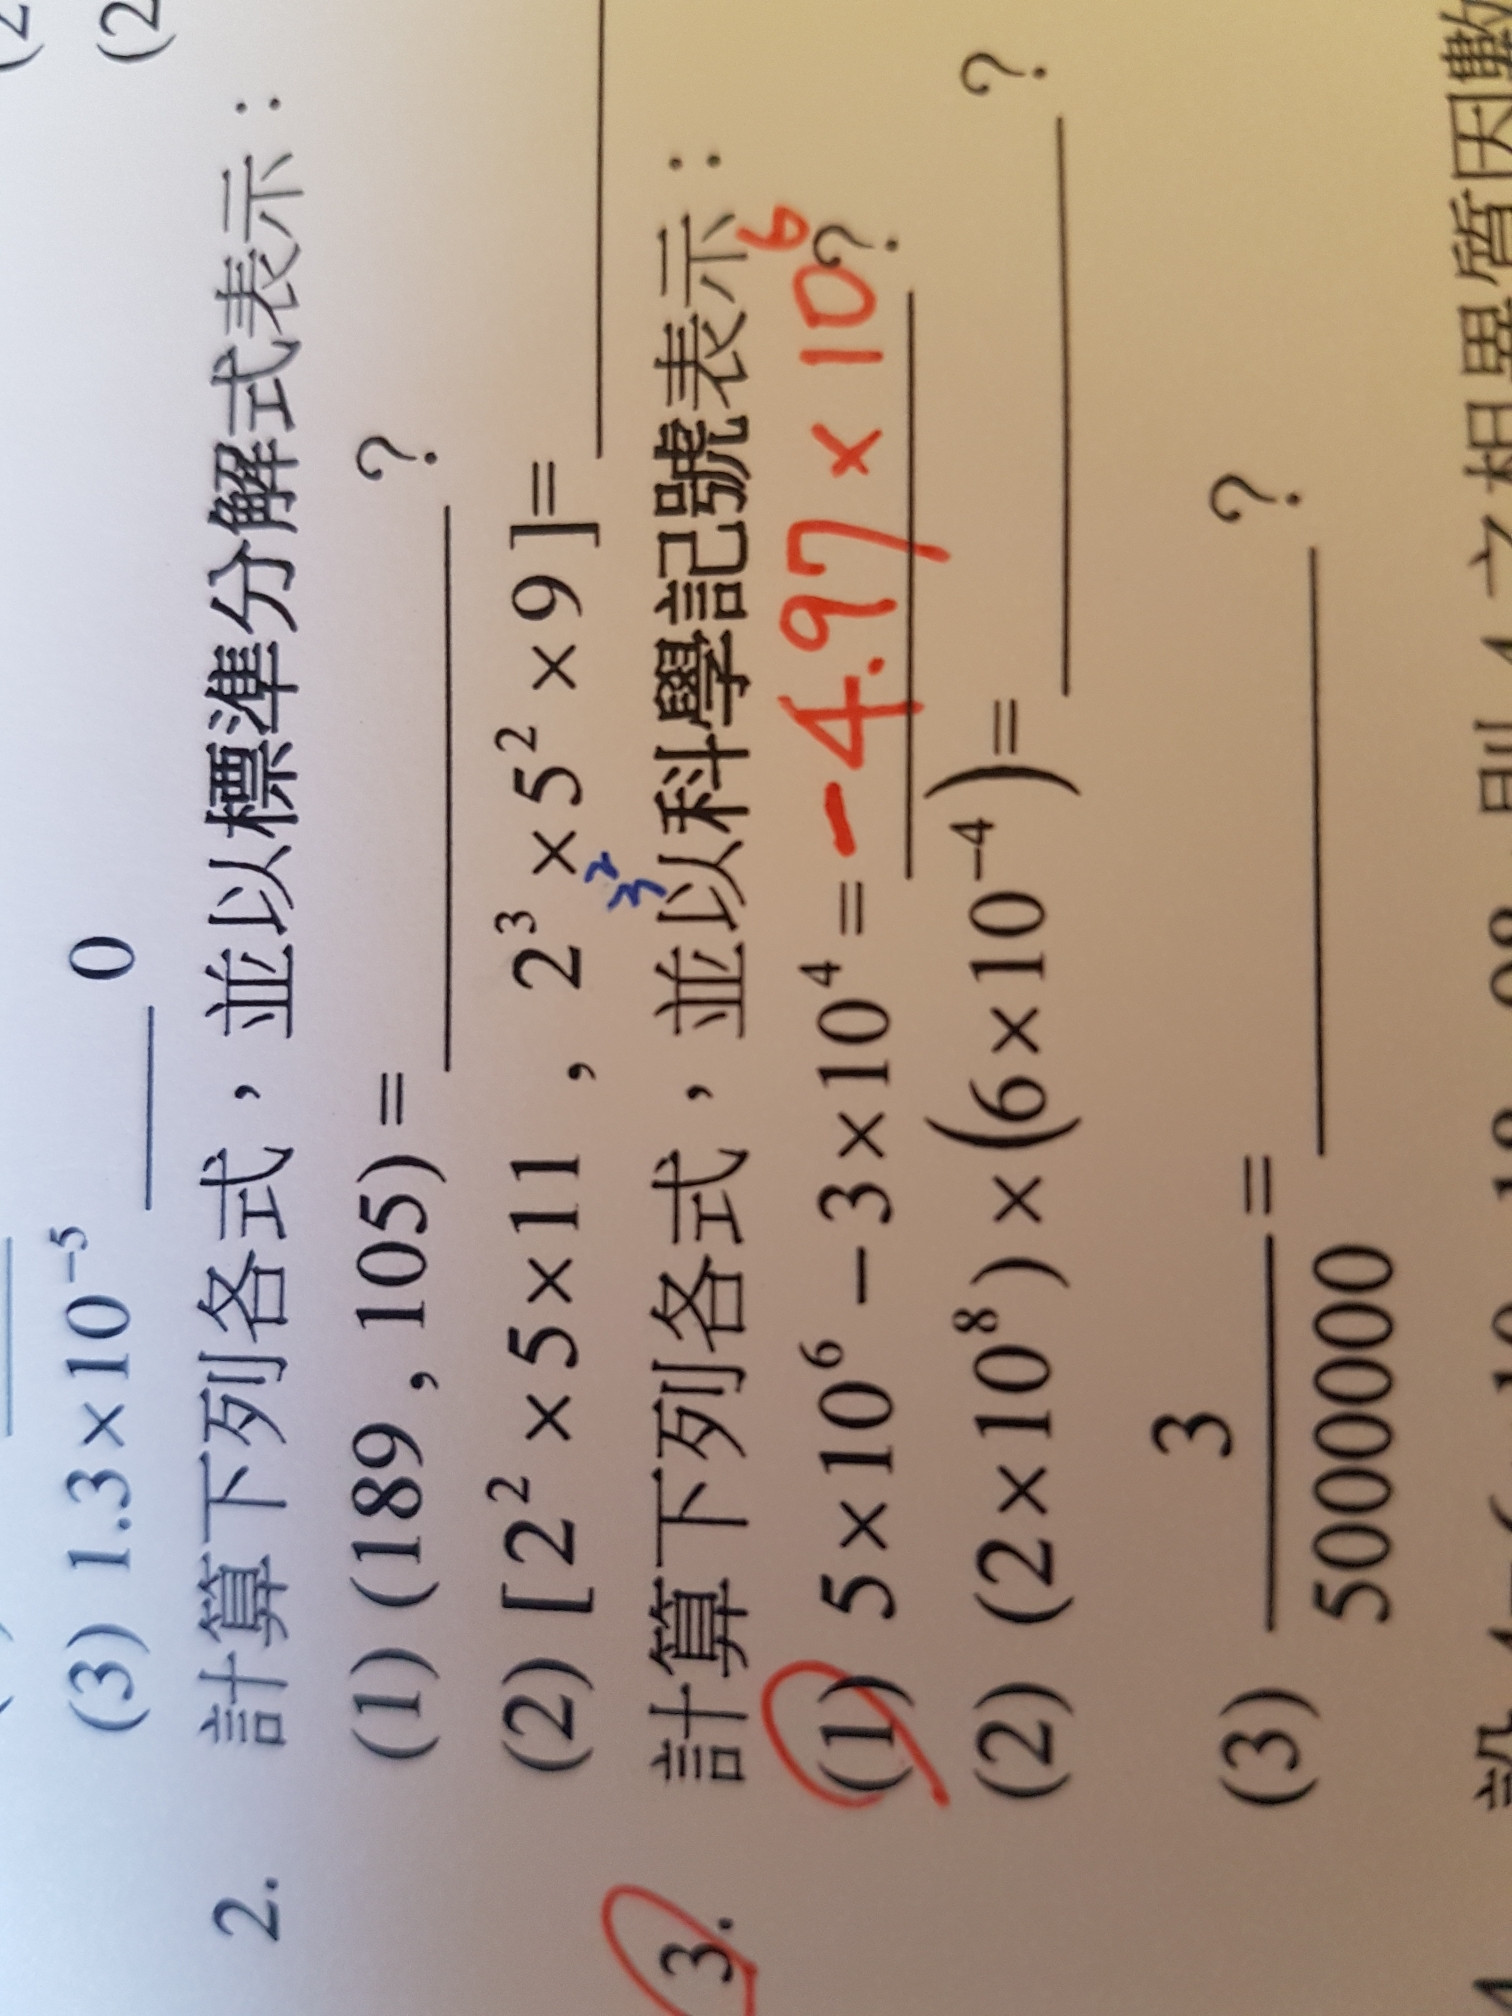 (3) 1.3×10⁻⁵ ____ 0
2. 計算下列各式，並以標準分解式表示：
(1) (189 , 105) = ________ ?
(2) [2² ×5×11 , 2³ ×5² ×9]= ________
3²
3. 計算下列各式，並以科學記號表示：
(1) 5×10⁶ −3×10⁴ = -4.97×10⁶ ?
(2) (2×10⁸)×(6×10⁻⁴)= ________ ?
(3) 3/5000000 = ________ ?
之相異質因數